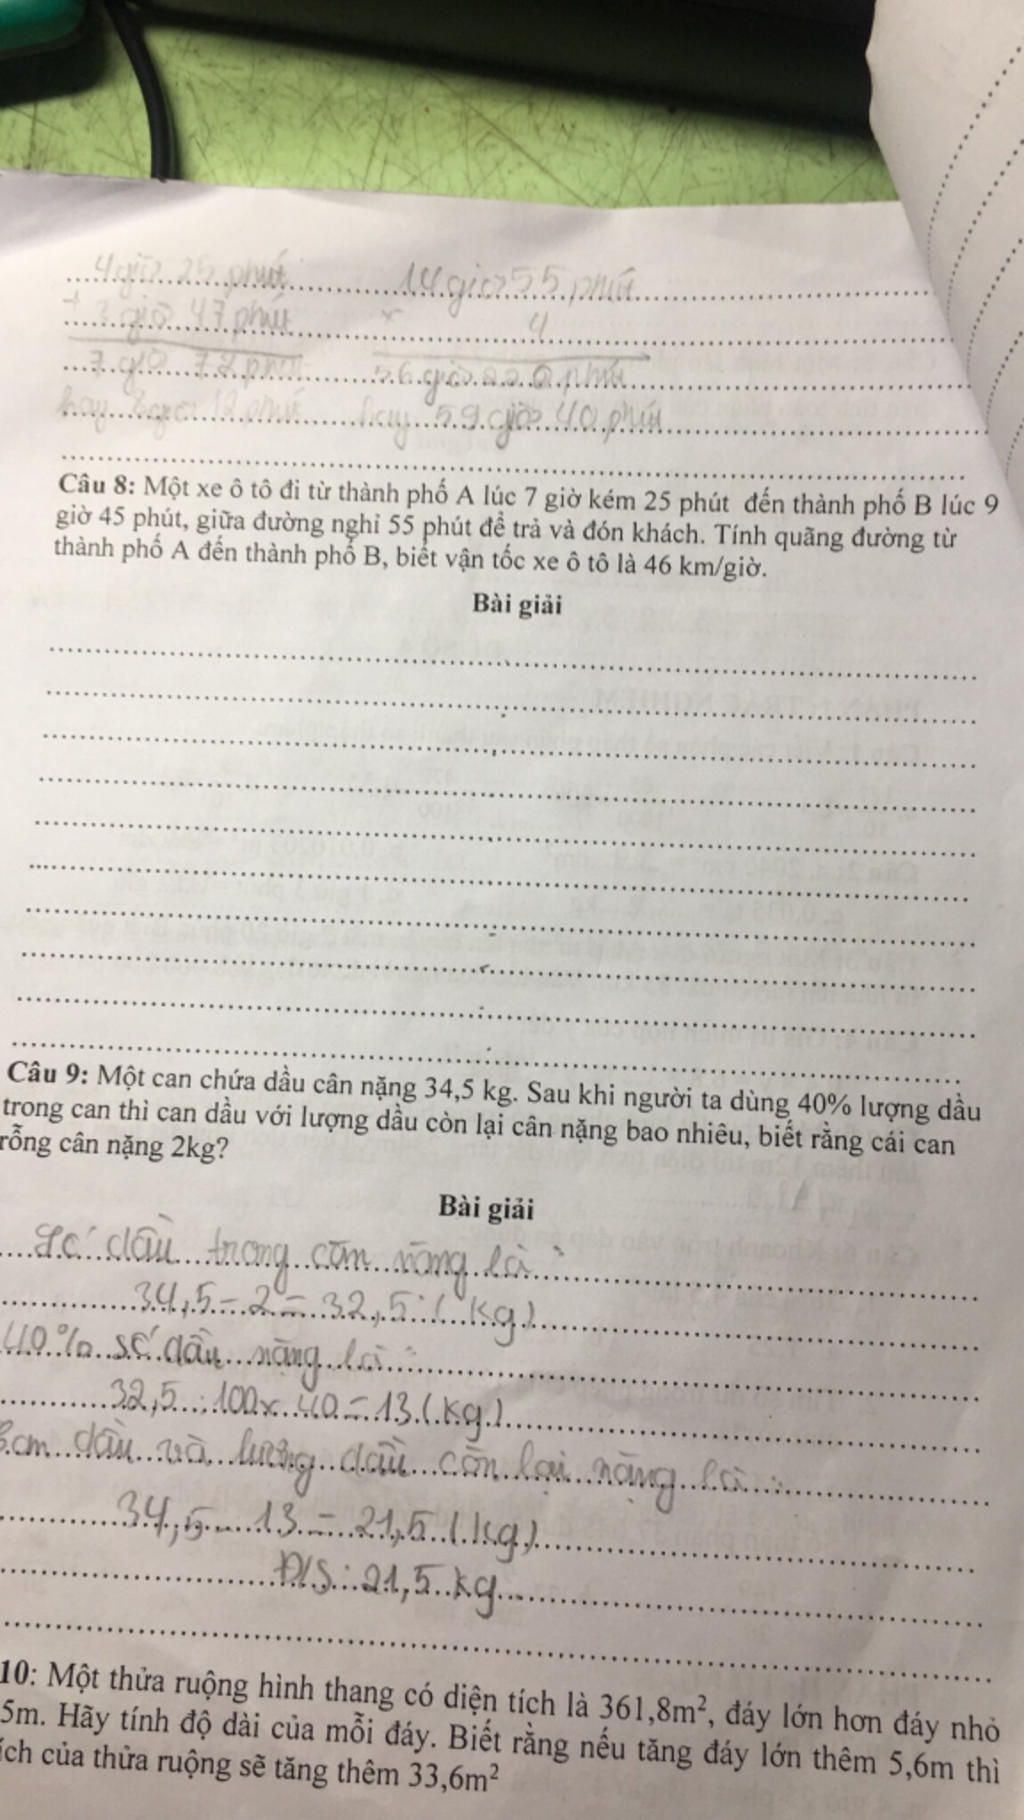 4 giờ 25 phút 14 giờ 55 phút
+ 3 giờ 47 phút × 4
7 giờ 72 phút 56 giờ 220 phút
hay 8 giờ 12 phút hay 59 giờ 40 phút
Câu 8: Một xe ô tô đi từ thành phố A lúc 7 giờ kém 25 phút đến thành phố B lúc 9
giờ 45 phút, giữa đường nghỉ 55 phút để trả và đón khách. Tính quãng đường từ
thành phố A đến thành phố B, biết vận tốc xe ô tô là 46 km/giờ.
Bài giải
Câu 9: Một can chứa dầu cân nặng 34,5 kg. Sau khi người ta dùng 40% lượng dầu
trong can thì can dầu với lượng dầu còn lại cân nặng bao nhiêu, biết rằng cái can
rỗng cân nặng 2kg?
Bài giải
Số dầu trong can nặng là:
34,5 - 2 = 32,5 (kg)
40% số dầu nặng là:
32,5 : 100 x 40 = 13 (kg)
dầu và lượng dầu còn lại nặng là:
34,5 - 13 = 21,5 (kg)
Đ/S: 21,5 kg
10: Một thửa ruộng hình thang có diện tích là 361,8m², đáy lớn hơn đáy nhỏ
5m. Hãy tính độ dài của mỗi đáy. Biết rằng nếu tăng đáy lớn thêm 5,6m thì
ích của thửa ruộng sẽ tăng thêm 33,6m²